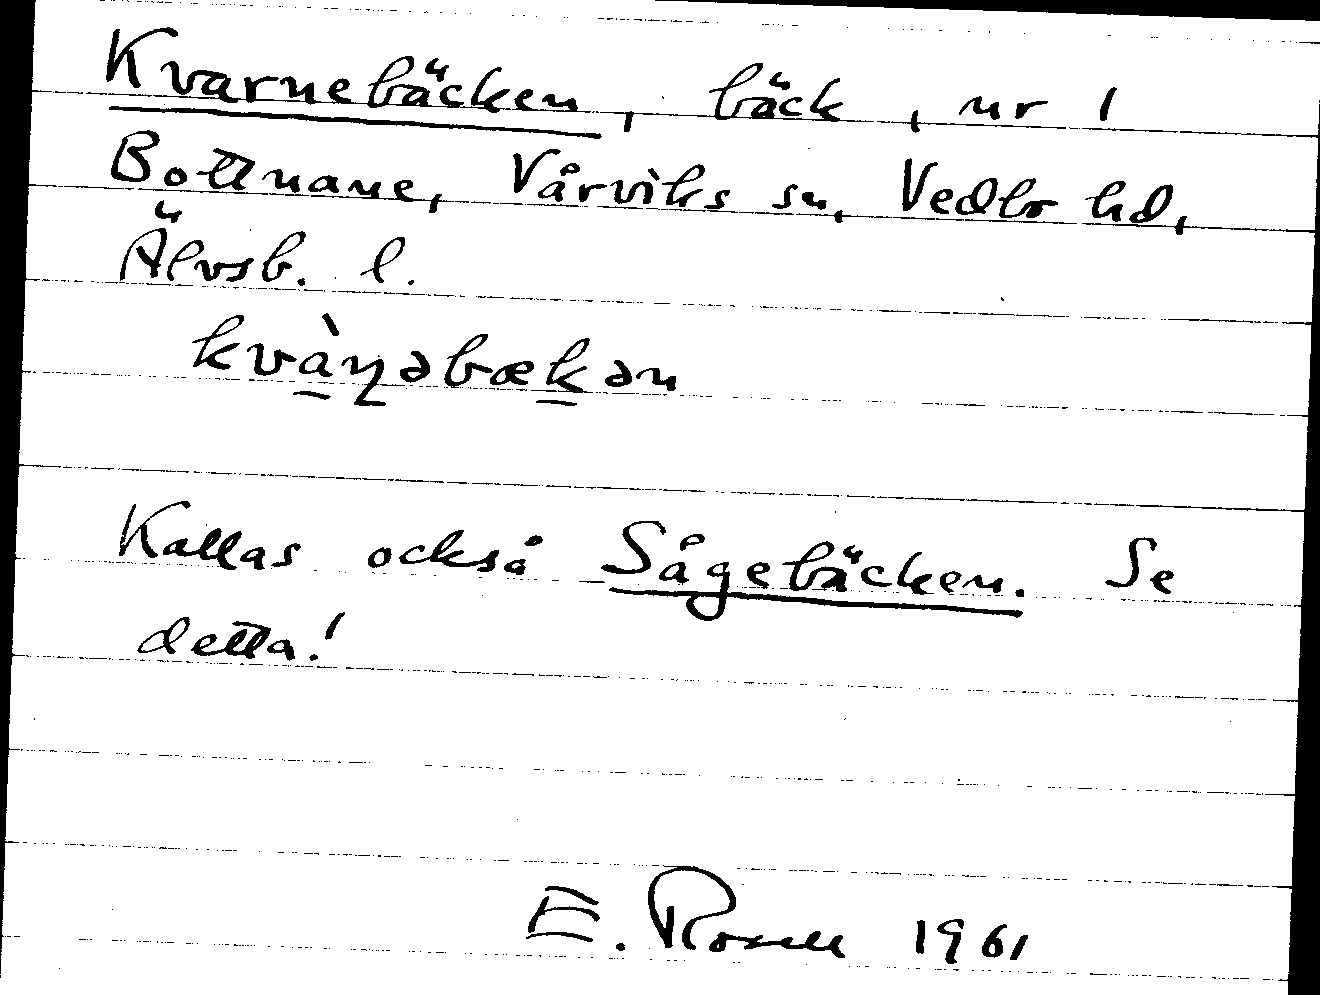 Kvarnebäcken, bäck, nr 1
Bottnane, Vårviks sn, Vedbo hd,
Älvsb. l.
kvàɳəbækən
Kallas också Sågebäcken. Se
detta!
E. Rosell 1961